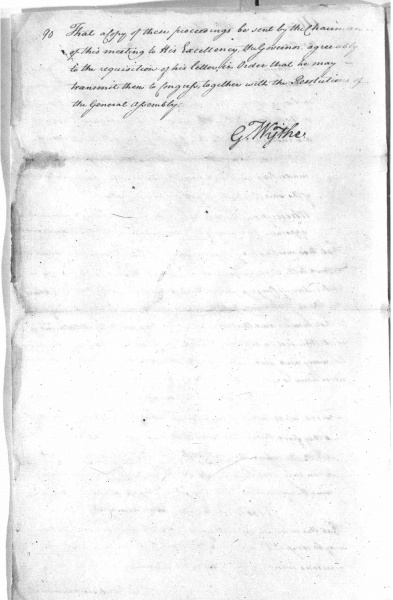 90 That a Copy of these proceedings be sent by the Chairman
of this meeting to His Excellency, the Governor agreeably
to the requisition of his letter, in Order that he may
transmit them to Congress, together with the Resolutions of
the General Assembly.
G. Wythe